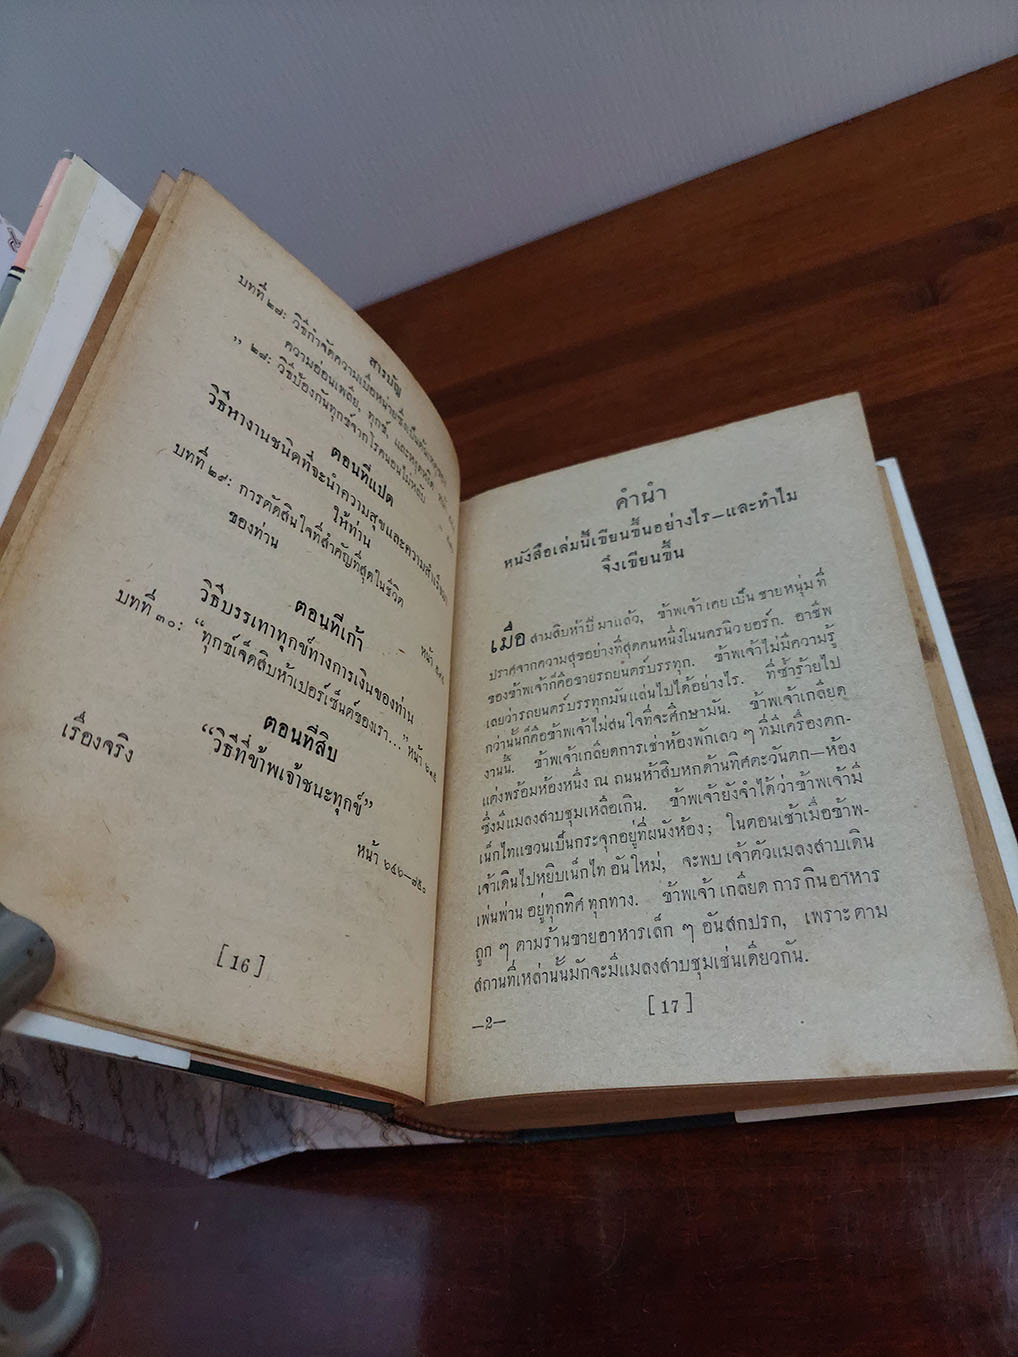 สารบัญ
บทที่ ๒๗: วิธีกำจัดความเบื่อหน่ายซึ่งเป็นต้นเหตุของ
ความอ่อนเพลีย, ทุกข์, และหงุดหงิด
” ๒๘: วิธีป้องกันทุกข์จากโรคนอนไม่หลับ
ตอนที่แปด
วิธีหางานชนิดที่จะนำความสุขและความสำเร็จมา
ให้ท่าน
บทที่ ๒๙: การตัดสินใจที่สำคัญที่สุดในชีวิต
ของท่าน
ตอนที่เก้า
วิธีบรรเทาทุกข์ทางการเงินของท่าน
บทที่ ๓๐: “ทุกข์เจ็ดสิบห้าเปอร์เซ็นต์ของเรา...”
ตอนที่สิบ
“วิธีที่ข้าพเจ้าชนะทุกข์”
เรื่องจริง
[ 16 ]
คำนำ
หนังสือเล่มนี้เขียนขึ้นอย่างไร—และทำไม
จึงเขียนขึ้น
เมื่อ สามสิบห้าปี มาแล้ว, ข้าพเจ้า เคย เป็น ชายหนุ่ม ที่
ปราศจากความสุขอย่างที่สุดคนหนึ่งในนครนิวยอร์ก. อาชีพ
ของข้าพเจ้าก็คือขายรถยนตร์บรรทุก. ข้าพเจ้าไม่มีความรู้
เลยว่ารถยนตร์บรรทุกมันแล่นไปได้อย่างไร. ที่ซ้ำร้ายไป
กว่านั้นก็คือข้าพเจ้าไม่สนใจที่จะศึกษามัน. ข้าพเจ้าเกลียด
งานนี้. ข้าพเจ้าเกลียดการเช่าห้องพักเลว ๆ ที่มีเครื่องตก-
แต่งพร้อมห้องหนึ่ง ณ ถนนห้าสิบหกด้านทิศตะวันตก—ห้อง
ซึ่งมีแมลงสาบชุมเหลือเกิน. ข้าพเจ้ายังจำได้ว่าข้าพเจ้ามี
เน็กไทแขวนเป็นกระจุกอยู่ที่ผนังห้อง; ในตอนเช้าเมื่อข้าพ-
เจ้าเดินไปหยิบเน็กไท อันใหม่, จะพบ เจ้าตัวแมลงสาบเดิน
เพ่นพ่าน อยู่ทุกทิศ ทุกทาง. ข้าพเจ้า เกลียด การ กิน อาหาร
ถูก ๆ ตามร้านขายอาหารเล็ก ๆ อันสกปรก, เพราะ ตาม
สถานที่เหล่านั้นมักจะมีแมลงสาบชุมเช่นเดียวกัน.
[ 17 ]
—2—